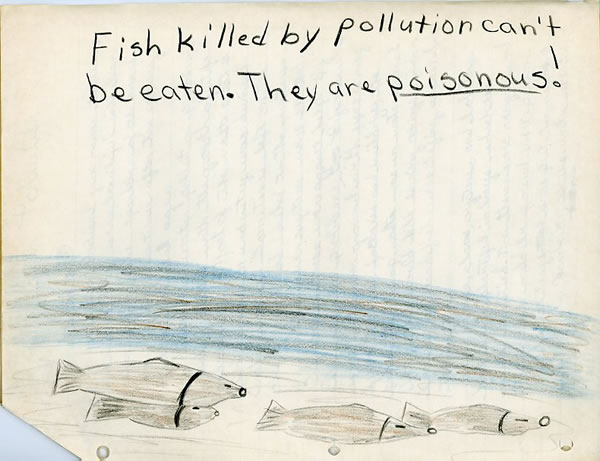 Fish killed by pollution can't
be eaten. They are poisonous!